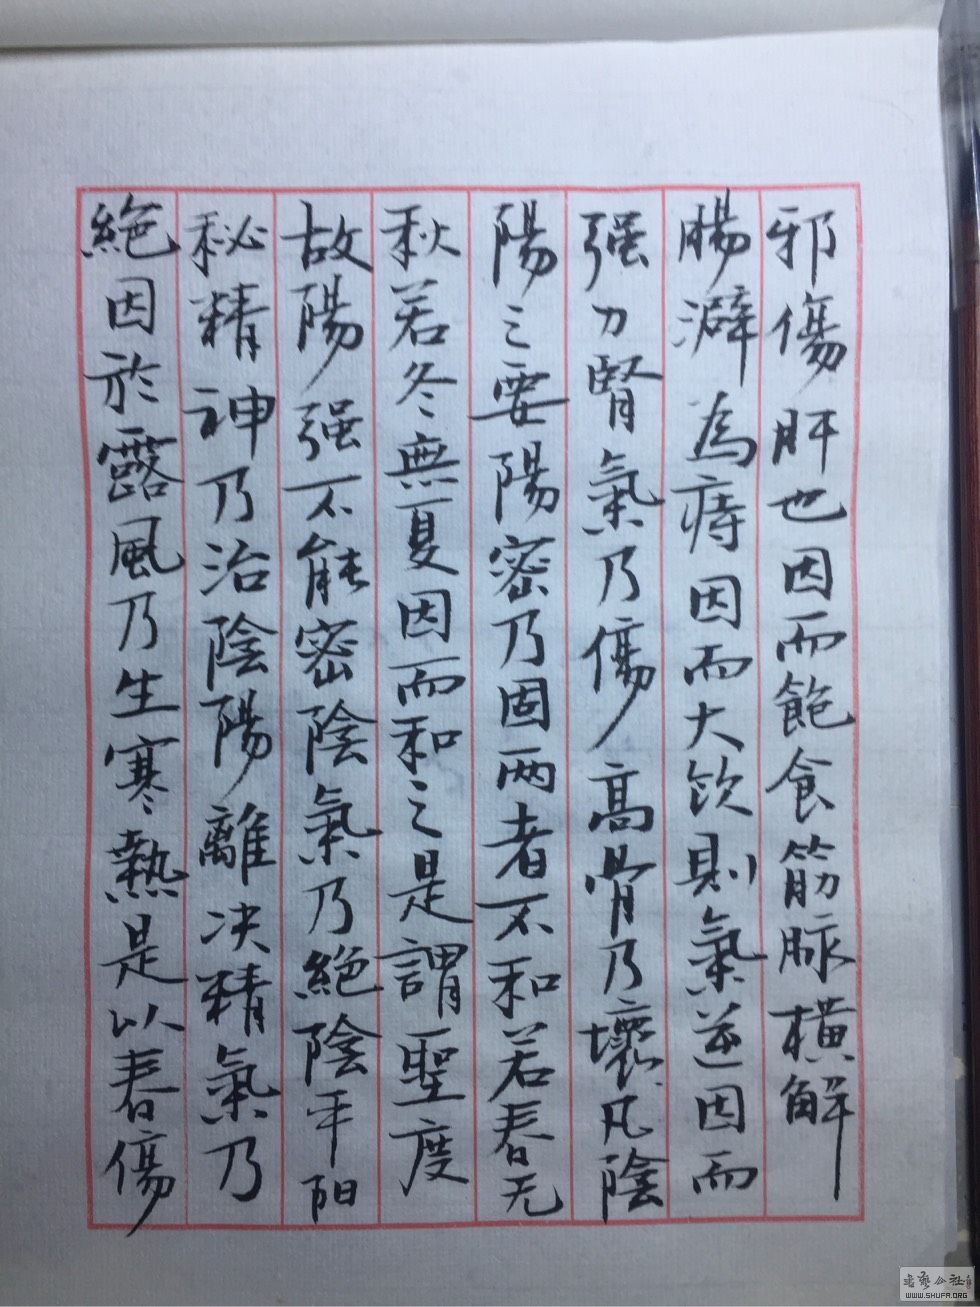 邪傷肝也因而飽食筋脉橫解
腸澼為痔因而大飲則氣逆因而
强力腎氣乃傷高骨乃壞凡陰
陽之要陽密乃固两者不和若春无
秋若冬無夏因而和之是謂聖度
故陽强不能密陰氣乃絕陰平阳
秘精神乃治陰陽離决精氣乃
絕因於露風乃生寒熱是以春傷
書藝公社
WWW.SHUFA.ORG